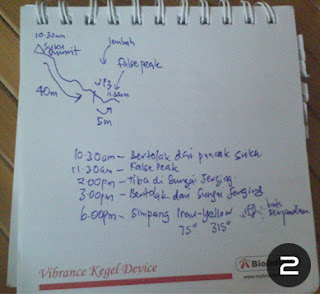 10.30am
Suku
summit
lembah
false peak
11.30am
40m
5m
10.30am - Bertolak dari puncak suku
11.30am - False Peak
2.00pm - Tiba di Sungai Jerging
3.00pm - Bertolak dari Sungai Jerging
6.00pm - Simpang Iraw-Yellow
batu
sempadan
75° 315°
Vibrance Kegel Device
2